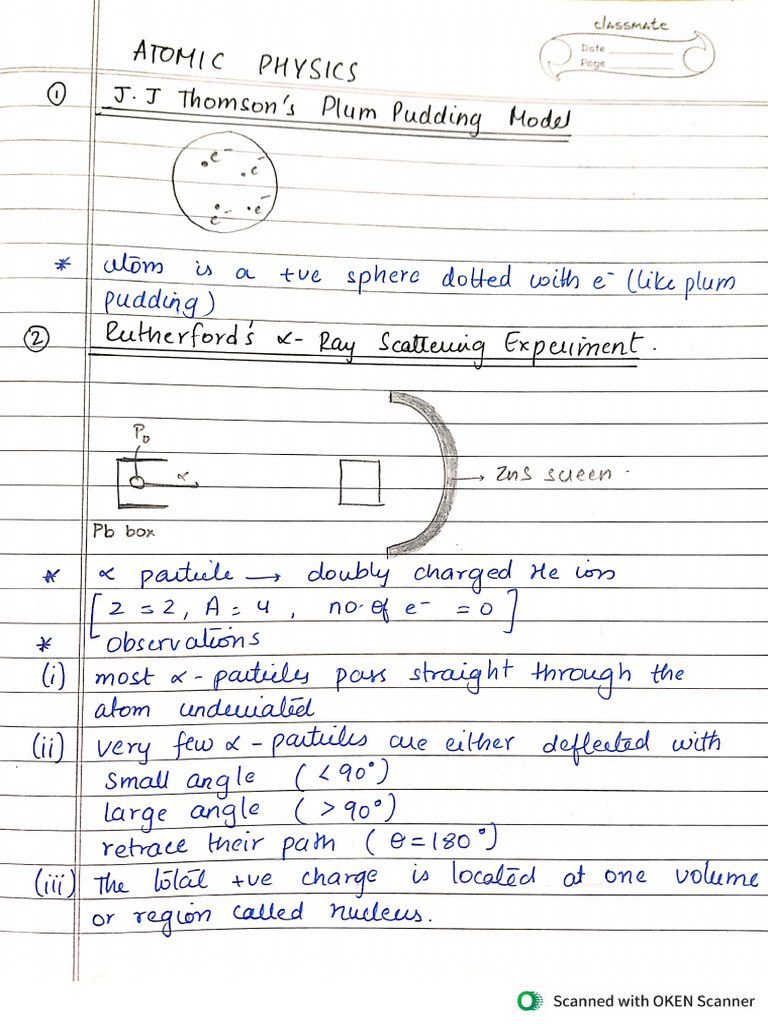 classmate
Date
Page
ATOMIC PHYSICS
① J.J Thomson's Plum Pudding Model
e⁻ e⁻
e⁻ e⁻
* atom is a +ve sphere dotted with e⁻ (like plum
pudding)
② Rutherford's α- Ray Scattering Experiment.
Po
α
→ ZnS screen.
Pb box
* α particle → doubly charged He ion
[Z = 2, A = 4, no. of e⁻ = 0]
* Observations
(i) most α-particles pass straight through the
atom undeviated
(ii) very few α-particles are either deflected with
small angle (< 90°)
large angle (> 90°)
retrace their path (θ = 180°)
(iii) The total +ve charge is located at one volume
or region called nucleus.
Scanned with OKEN Scanner